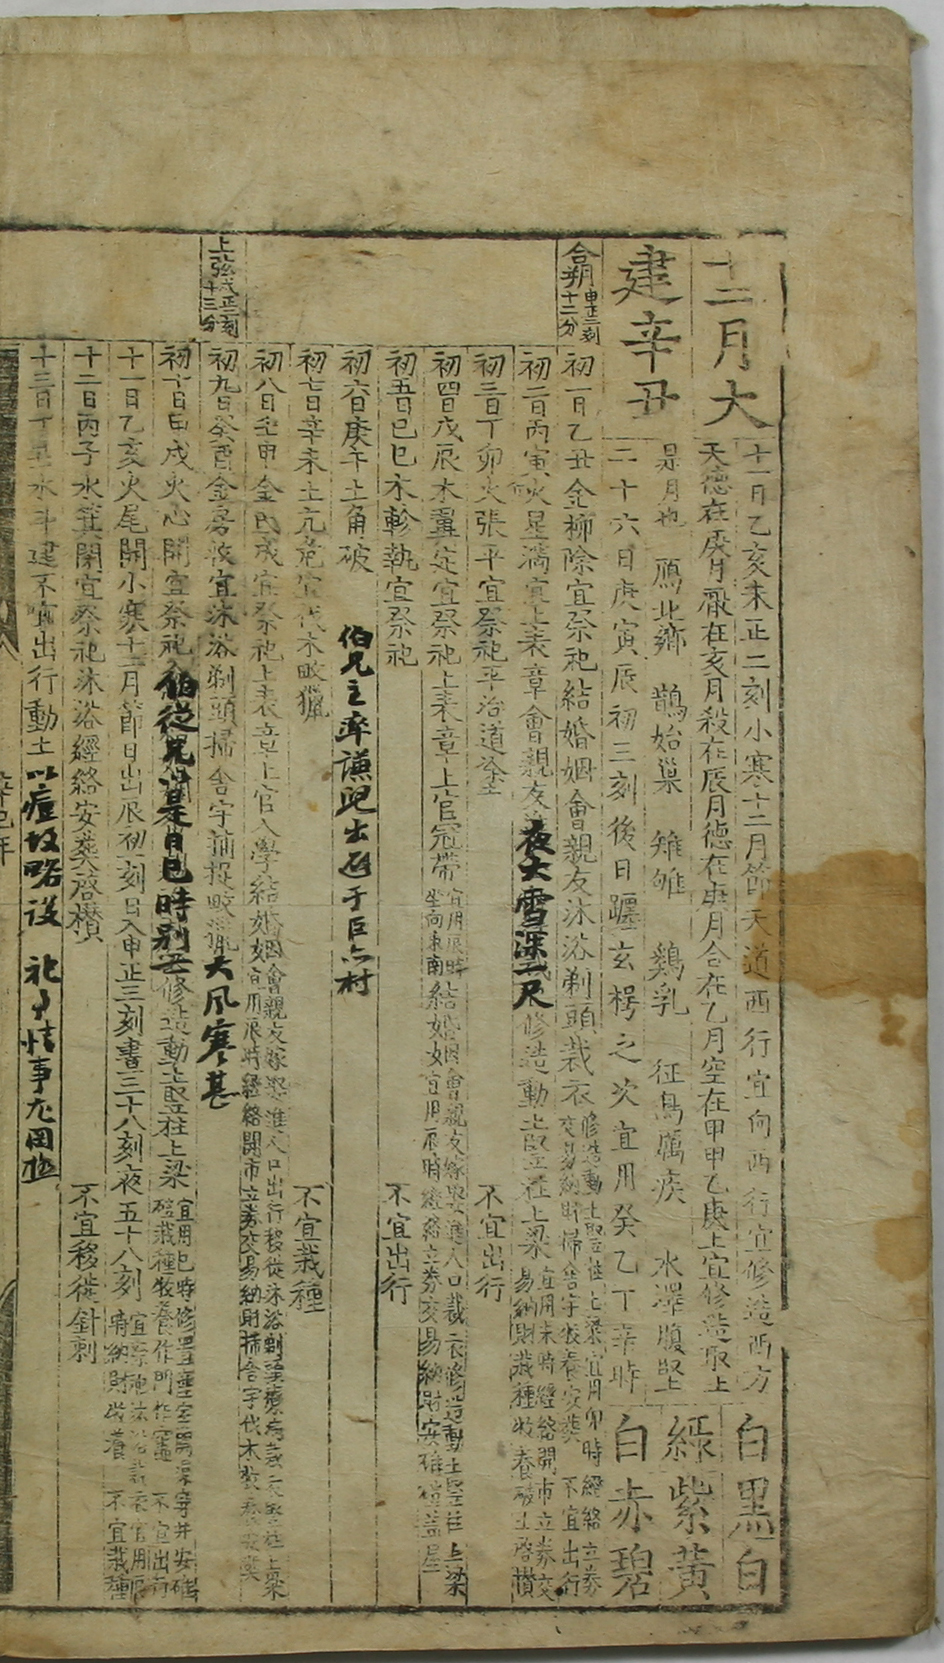 十二月大
建辛丑
十一日乙亥未正二刻小寒十二月節天道西行宜向西行宜修造西方
天德在庚月厭在亥月殺在辰月德在庚月合在乙月空在甲甲乙庚上宜修造取土
是月也 鴈北鄉 鵲始巢 雉雊 鷄乳 征鳥厲疾 水澤腹堅
二十六日庚寅辰初三刻後日躔玄枵之次宜用癸乙丁辛時
白黑白
綠紫黃
白赤碧
合朔申正二刻十二分
初一日乙丑金柳除宜祭祀結婚姻會親友沐浴剃頭裁衣修造動土竪柱上梁宜用卯時經絡立券交易納財掃舍宇牧養安葬 不宜出行
初二日丙寅火星滿宜上表章會親友 夜大雪深二尺 修造動土竪柱上梁宜用未時經絡開市立券交易納財栽種牧養破土啓攢
初三日丁卯火張平宜祭祀平治道塗 不宜出行
初四日戊辰木翼定宜祭祀上表章上官冠帶宜用辰時坐向東南結婚姻會親友嫁娶進人口裁衣修造動土竪柱上梁宜用辰時經絡立券交易納財安碓磑蓋屋
初五日己巳木軫執宜祭祀 不宜出行
初六日庚午土角破 伯兄主率謙兒出 于巨六村
初七日辛未土亢危宜伐木畋獵 不宜栽種
初八日壬申金氐成宜祭祀上表章上官入學結婚姻會親友嫁娶進人口出行移徙沐浴剃頭療病裁衣竪柱上梁宜用辰時經絡開市立券交易納財掃舍宇伐木牧養安葬
上弦戌正三刻十三分
初九日癸酉金房收宜沐浴剃頭掃舍宇捕捉畋獵 大風寒甚
初十日甲戌火心開宜祭祀 伯從兄 是日巳時別世 修造動土竪柱上梁宜用巳時修置產室開渠穿井安碓磑栽種牧養 不宜出行
十一日乙亥火尾開小寒十二月節日出辰初一刻日入申正三刻晝三十八刻夜五十八刻 宜祭祀沐浴裁衣宜用辰時納財牧養 不宜栽種
十二日丙子水箕閉宜祭祀沐浴經絡安葬啓攢 不宜移徙針刺
十三日丁丑水斗建不宜出行動土 以痘故略設 祀 情事尤罔極